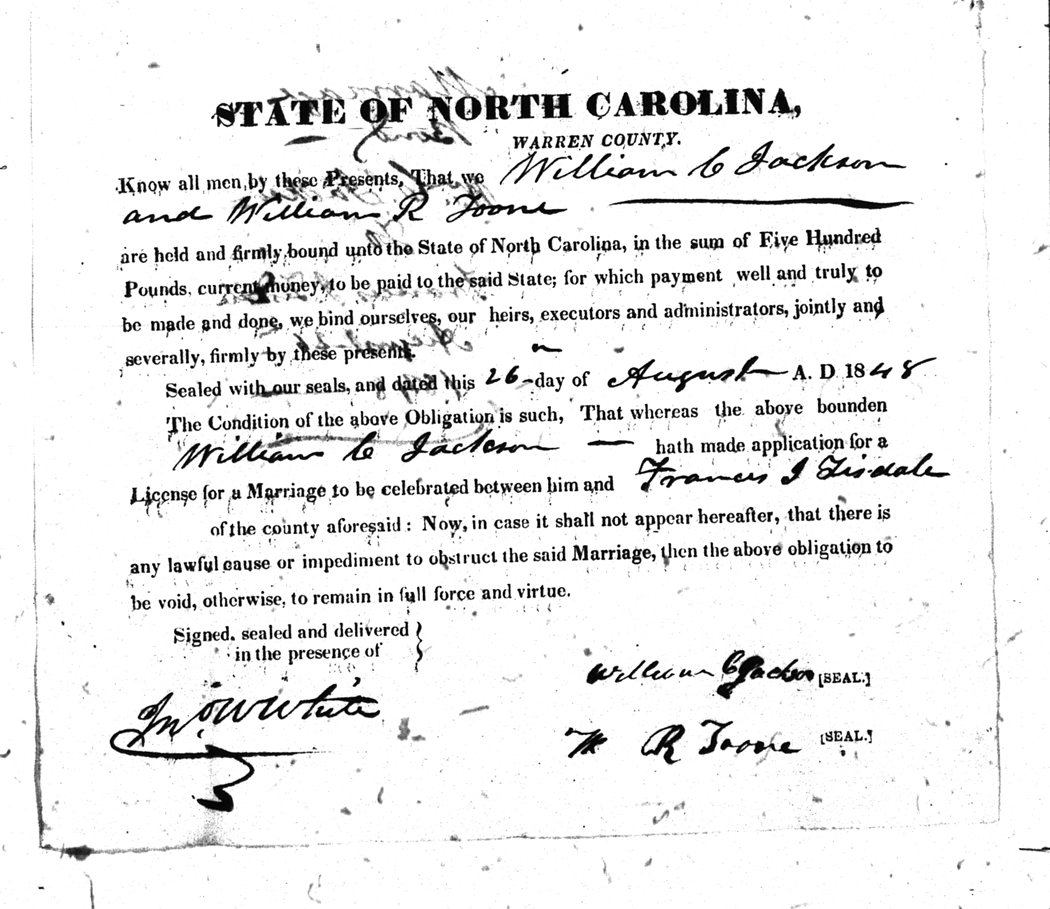 STATE OF NORTH CAROLINA,
WARREN COUNTY.
Know all men by these Presents, That we William C Jackson
and William R Toone
are held and firmly bound unto the State of North Carolina, in the sum of Five Hundred
Pounds, current money, to be paid to the said State; for which payment well and truly to
be made and done, we bind ourselves, our heirs, executors and administrators, jointly and
severally, firmly by these presents.
Sealed with our seals, and dated this 26 day of August A. D 1848
The Condition of the above Obligation is such, That whereas the above bounden
William C Jackson — hath made application for a
License for a Marriage to be celebrated between him and Frances J Tisdale
of the county aforesaid: Now, in case it shall not appear hereafter, that there is
any lawful cause or impediment to obstruct the said Marriage, then the above obligation to
be void, otherwise, to remain in full force and virtue.
Signed, sealed and delivered }
in the presence of
William C Jackson [SEAL.]
Jno W White
W R Toone [SEAL.]